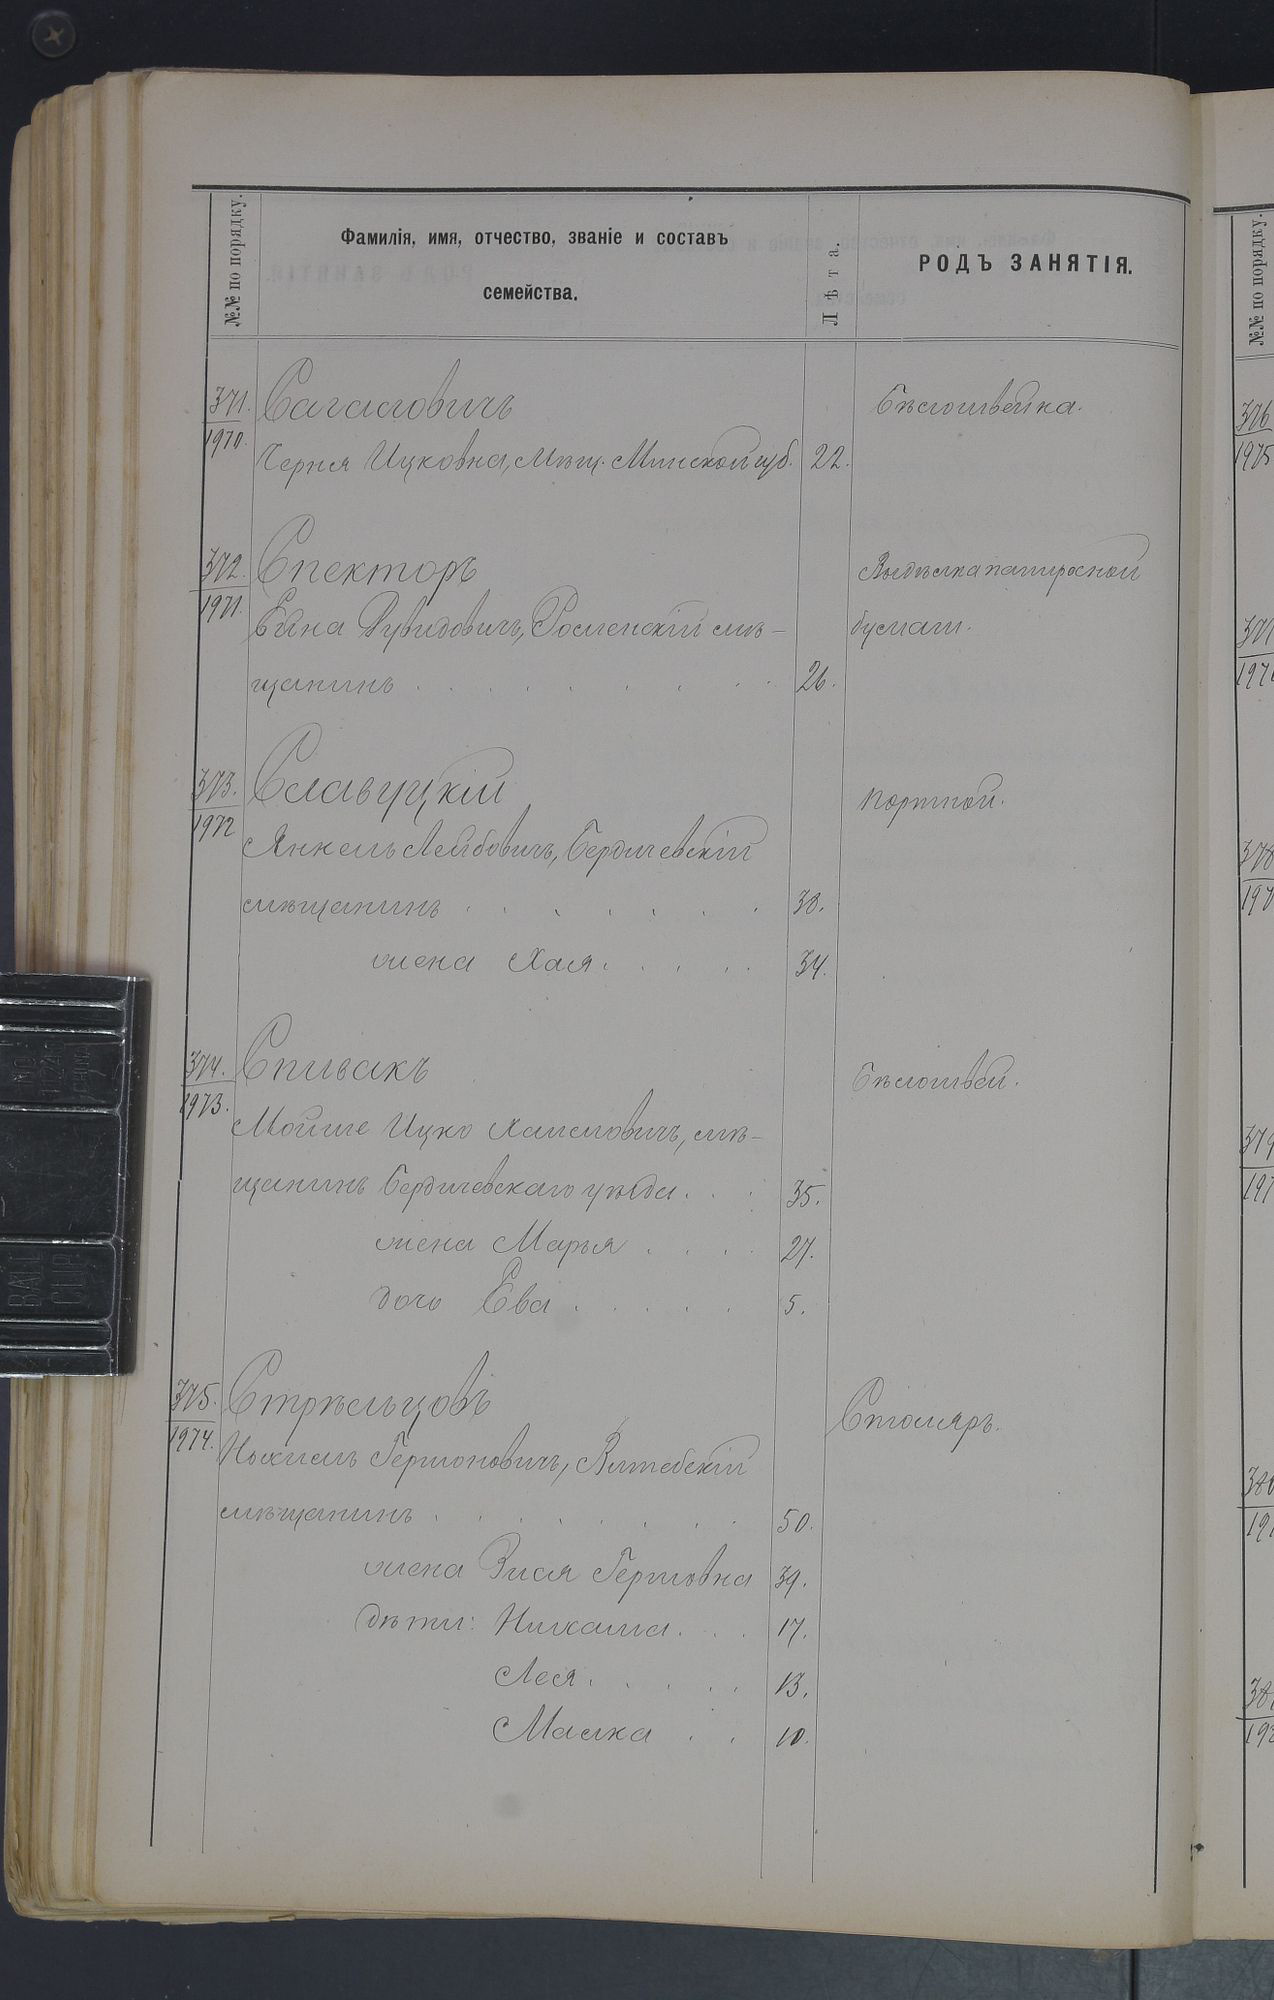 №№ по порядку.
Фамилія, имя, отчество, званіе и составъ
семейства.
Лѣта.
РОДЪ ЗАНЯТІЯ.
371. Сагаловичъ Бѣлошвейка.
1970. Черня Ицковна, Мѣщ. Минской губ. 22.
372. Спекторъ Выдѣлка папиросной
1971. Ейна Дувидовичъ, Роменскій мѣ- бумаги.
щанинъ . . . . . . . . 26.
373. Славуцкій портной.
1972 Янкель Лейбовичъ, Бердичевскій
мѣщанинъ . . . . . . . 38.
жена Хая . . . . . 34.
374. Спивакъ Бѣлошвей.
1973. Мойше Ицко Хаимовичъ, мѣ-
щанинъ Бердичевскаго уѣзда . . . 35.
жена Марья . . . . 27.
дочь Ева . . . . . 5.
375. Стрѣльцовъ Столяръ.
1974. Гершоновичъ, Витебскій
мѣщанинъ . . . . . . . . 50.
жена Зися Гершовна 39.
дѣти: . . . 17.
Лея . . . . . 13.
Малка . . 10.
№№ по порядку.
376
1975
377
378
379
380
BALL
CLIP